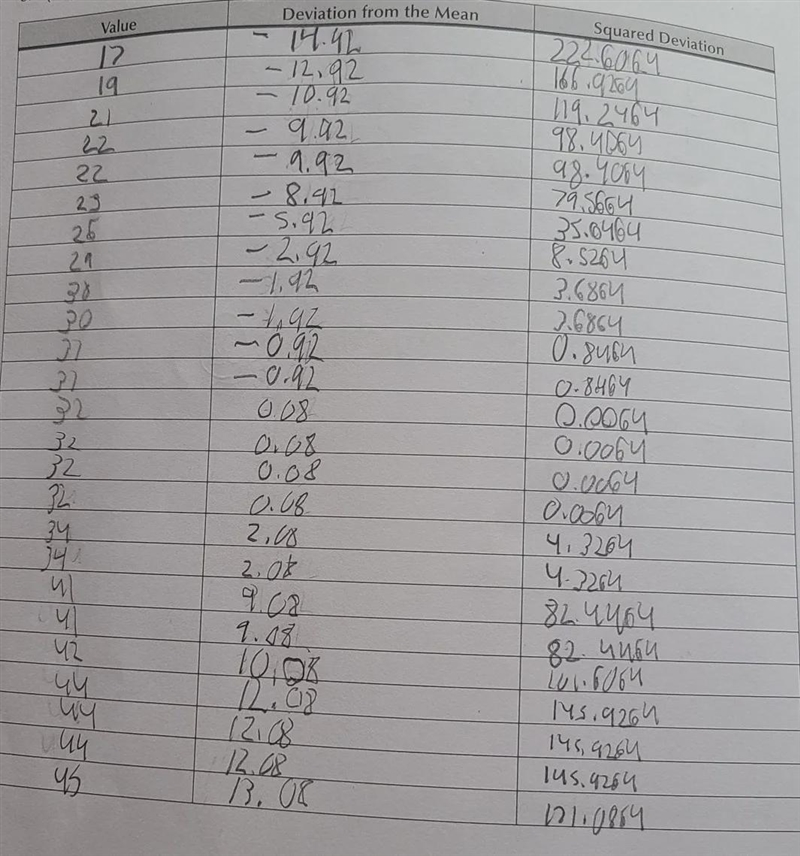 Value Deviation from the Mean Squared Deviation
17 - 14.92 222.6064
19 - 12.92 166.9264
21 - 10.92 119.2464
22 - 9.92 98.4064
22 - 9.92 98.4064
23 - 8.92 79.5664
26 - 5.92 35.0464
29 - 2.92 8.5264
30 - 1.92 3.6864
30 - 1.92 3.6864
31 - 0.92 0.8464
31 - 0.92 0.8464
32 0.08 0.0064
32 0.08 0.0064
32 0.08 0.0064
32 0.08 0.0064
34 2.08 4.3264
34 2.08 4.3264
41 9.08 82.4464
41 9.08 82.4464
42 10.08 101.6064
44 12.08 145.9264
44 12.08 145.9264
44 12.08 145.9264
45 13.08 171.0864